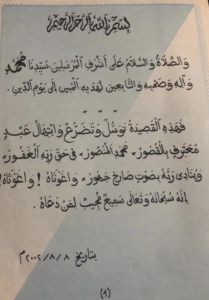 بسم الله الرحمن الرحيم
والصلاة والسلام على أشرف المرسلين سيدنا محمد
وآله وصحبه والتابعين لهديه المبين إلى يوم الدين.
فهذه القصيدة توسل وتضرع وابتهال عبد
معترف بالقصور، محمد المنصور، في حق ربه الغفور،
وينادي ربه بصوت صارخ جهور، واغوثاه! واغوثاه!
إنه سبحانه وتعالى سميع مجيب لمن دعاه.
بتاريخ ٨/٨/٢٠٠٢م